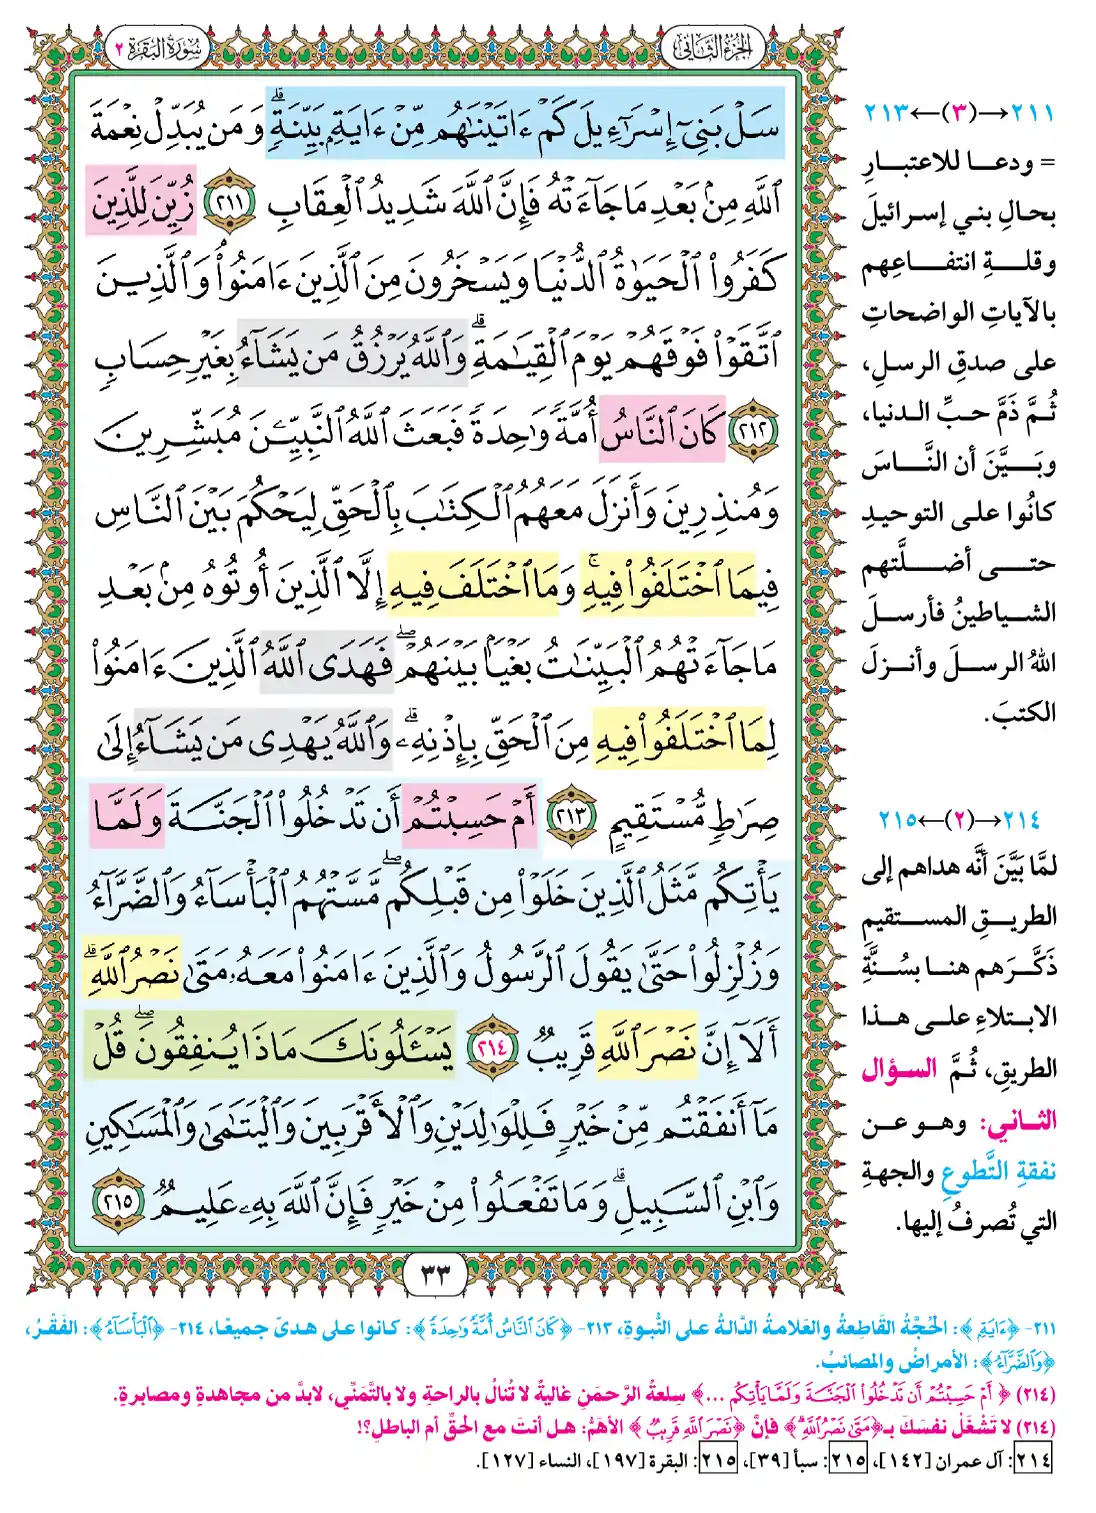 الجزء الثاني
سورة البقرة ٢
سَلْ بَنِىٓ إِسْرَٰٓءِيلَ كَمْ ءَاتَيْنَٰهُم مِّنْ ءَايَةٍۭ بَيِّنَةٍۗ وَمَن يُبَدِّلْ نِعْمَةَ
ٱللَّهِ مِنۢ بَعْدِ مَا جَآءَتْهُ فَإِنَّ ٱللَّهَ شَدِيدُ ٱلْعِقَابِ ٢١١ زُيِّنَ لِلَّذِينَ
كَفَرُوا۟ ٱلْحَيَوٰةُ ٱلدُّنْيَا وَيَسْخَرُونَ مِنَ ٱلَّذِينَ ءَامَنُوا۟ۘ وَٱلَّذِينَ
ٱتَّقَوْا۟ فَوْقَهُمْ يَوْمَ ٱلْقِيَٰمَةِۗ وَٱللَّهُ يَرْزُقُ مَن يَشَآءُ بِغَيْرِ حِسَابٍ
٢١٢ كَانَ ٱلنَّاسُ أُمَّةً وَٰحِدَةً فَبَعَثَ ٱللَّهُ ٱلنَّبِيِّـۧنَ مُبَشِّرِينَ
وَمُنذِرِينَ وَأَنزَلَ مَعَهُمُ ٱلْكِتَٰبَ بِٱلْحَقِّ لِيَحْكُمَ بَيْنَ ٱلنَّاسِ
فِيمَا ٱخْتَلَفُوا۟ فِيهِۚ وَمَا ٱخْتَلَفَ فِيهِ إِلَّا ٱلَّذِينَ أُوتُوهُ مِنۢ بَعْدِ
مَا جَآءَتْهُمُ ٱلْبَيِّنَٰتُ بَغْيًۢا بَيْنَهُمْۖ فَهَدَى ٱللَّهُ ٱلَّذِينَ ءَامَنُوا۟
لِمَا ٱخْتَلَفُوا۟ فِيهِ مِنَ ٱلْحَقِّ بِإِذْنِهِۦۗ وَٱللَّهُ يَهْدِى مَن يَشَآءُ إِلَىٰ
صِرَٰطٍ مُّسْتَقِيمٍ ٢١٣ أَمْ حَسِبْتُمْ أَن تَدْخُلُوا۟ ٱلْجَنَّةَ وَلَمَّا
يَأْتِكُم مَّثَلُ ٱلَّذِينَ خَلَوْا۟ مِن قَبْلِكُمۖ مَّسَّتْهُمُ ٱلْبَأْسَآءُ وَٱلضَّرَّآءُ
وَزُلْزِلُوا۟ حَتَّىٰ يَقُولَ ٱلرَّسُولُ وَٱلَّذِينَ ءَامَنُوا۟ مَعَهُۥ مَتَىٰ نَصْرُ ٱللَّهِۗ
أَلَآ إِنَّ نَصْرَ ٱللَّهِ قَرِيبٌ ٢١٤ يَسْـَٔلُونَكَ مَاذَا يُنفِقُونَۖ قُلْ
مَآ أَنفَقْتُم مِّنْ خَيْرٍ فَلِلْوَٰلِدَيْنِ وَٱلْأَقْرَبِينَ وَٱلْيَتَٰمَىٰ وَٱلْمَسَٰكِينِ
وَٱبْنِ ٱلسَّبِيلِۗ وَمَا تَفْعَلُوا۟ مِنْ خَيْرٍ فَإِنَّ ٱللَّهَ بِهِۦ عَلِيمٌ ٢١٥
٣٣
٢١١→(٣)←٢١٣
= ودعا للاعتبارِ
بحالِ بني إسرائيلَ
وقلةِ انتفاعِهم
بالآياتِ الواضحاتِ
على صدقِ الرسلِ،
ثُمَّ ذَمَّ حبِّ الدنيا،
وبَيَّنَ أن النَّاسَ
كانُوا على التوحيدِ
حتى أضلَّتهم
الشياطينُ فأرسلَ
اللهُ الرسلَ وأنزلَ
الكتبَ.
٢١٤→(٢)←٢١٥
لمَّا بَيَّنَ أنَّه هداهم إلى
الطريقِ المستقيمِ
ذَكَّرَهم هنا بسُنَّةِ
الابتلاءِ على هذا
الطريقِ، ثُمَّ السؤال
الثاني: وهو عن
نفقةِ التَّطوعِ والجهةِ
التي تُصرفُ إليها.
٢١١- ﴿ءَايَةٍ﴾: الحُجَّةُ القَاطِعةُ والعَلامةُ الدَّالةُ على النُّبوةِ، ٢١٣- ﴿كَانَ ٱلنَّاسُ أُمَّةً وَٰحِدَةً﴾: كانوا على هدىً جميعًا، ٢١٤- ﴿ٱلْبَأْسَآءُ﴾: الفَقْرُ،
﴿وَٱلضَّرَّآءُ﴾: الأمراضُ والمصائبُ.
(٢١٤) ﴿أَمْ حَسِبْتُمْ أَن تَدْخُلُوا۟ ٱلْجَنَّةَ وَلَمَّا يَأْتِكُم ...﴾ سلعةُ الرَّحمَنِ غاليةٌ لا تُنالُ بالراحةِ ولا بالتَّمَنِّي، لابدَّ من مجاهدةٍ ومصابرةٍ.
(٢١٤) لا تَشْغَلْ نفسَكَ بـ﴿مَتَىٰ نَصْرُ ٱللَّهِۗ﴾ فإنَّ ﴿نَصْرَ ٱللَّهِ قَرِيبٌ﴾ الأهمُّ: هل أنتَ مع الحَقِّ أم الباطلِ؟!
٢١٤: آل عمران [١٤٢]، ٢١٥: سبأ [٣٩]، ٢١٥: البقرة [١٩٧]، النساء [١٢٧].